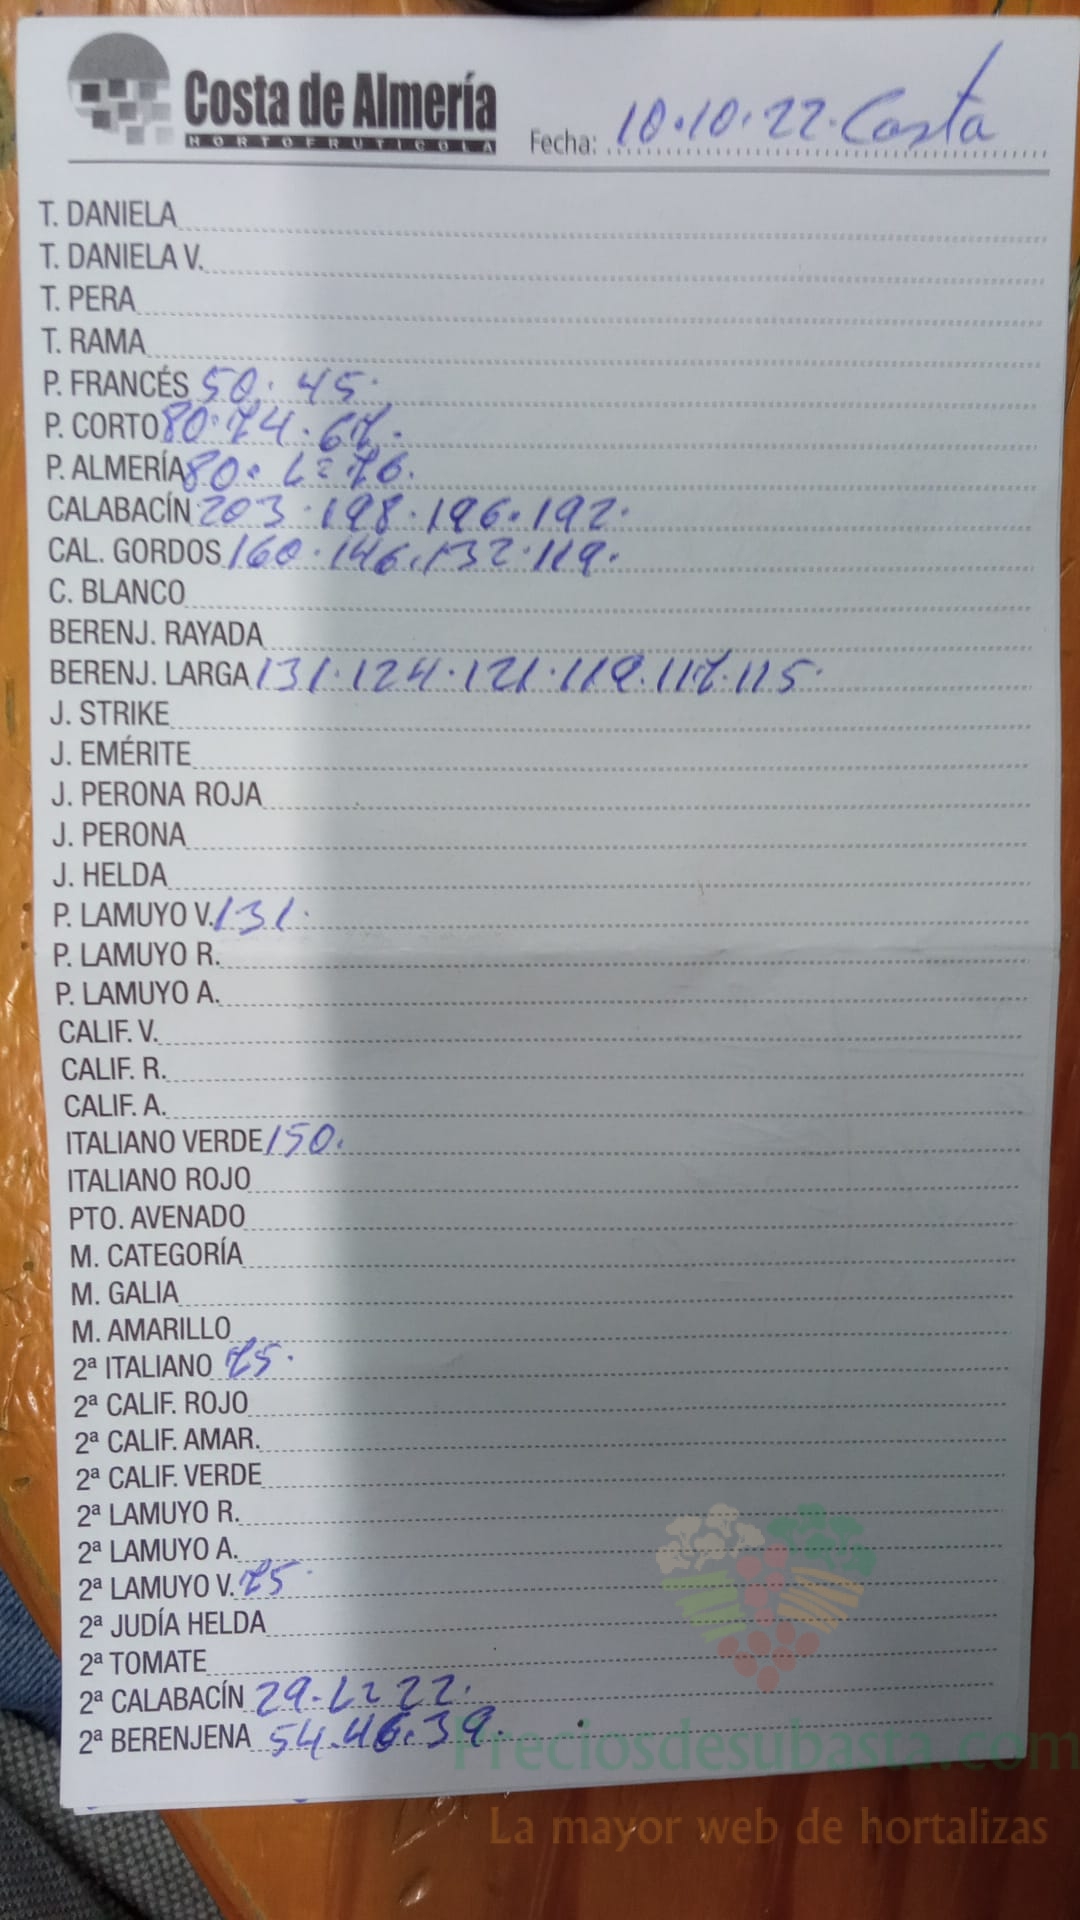 Costa de Almería
HORTOFRUTICOLA
Fecha: 10.10.22. Costa
T. DANIELA
T. DANIELA V.
T. PERA
T. RAMA
P. FRANCÉS 50. 45.
P. CORTO 80.74.67.
P. ALMERÍA 80. L= 76.
CALABACÍN 203.198.196.192.
CAL. GORDOS 160.146.132.119.
C. BLANCO
BERENJ. RAYADA
BERENJ. LARGA 131.124.121.119.117.115.
J. STRIKE
J. EMÉRITE
J. PERONA ROJA
J. PERONA
J. HELDA
P. LAMUYO V. 131.
P. LAMUYO R.
P. LAMUYO A.
CALIF. V.
CALIF. R.
CALIF. A.
ITALIANO VERDE 150.
ITALIANO ROJO
PTO. AVENADO
M. CATEGORÍA
M. GALIA
M. AMARILLO
2ª ITALIANO 75.
2ª CALIF. ROJO
2ª CALIF. AMAR.
2ª CALIF. VERDE
2ª LAMUYO R.
2ª LAMUYO A.
2ª LAMUYO V. 75.
2ª JUDÍA HELDA
2ª TOMATE
2ª CALABACÍN 29. L= 22.
2ª BERENJENA 54.46.39.
Preciosdesubasta.com
La mayor web de hortalizas